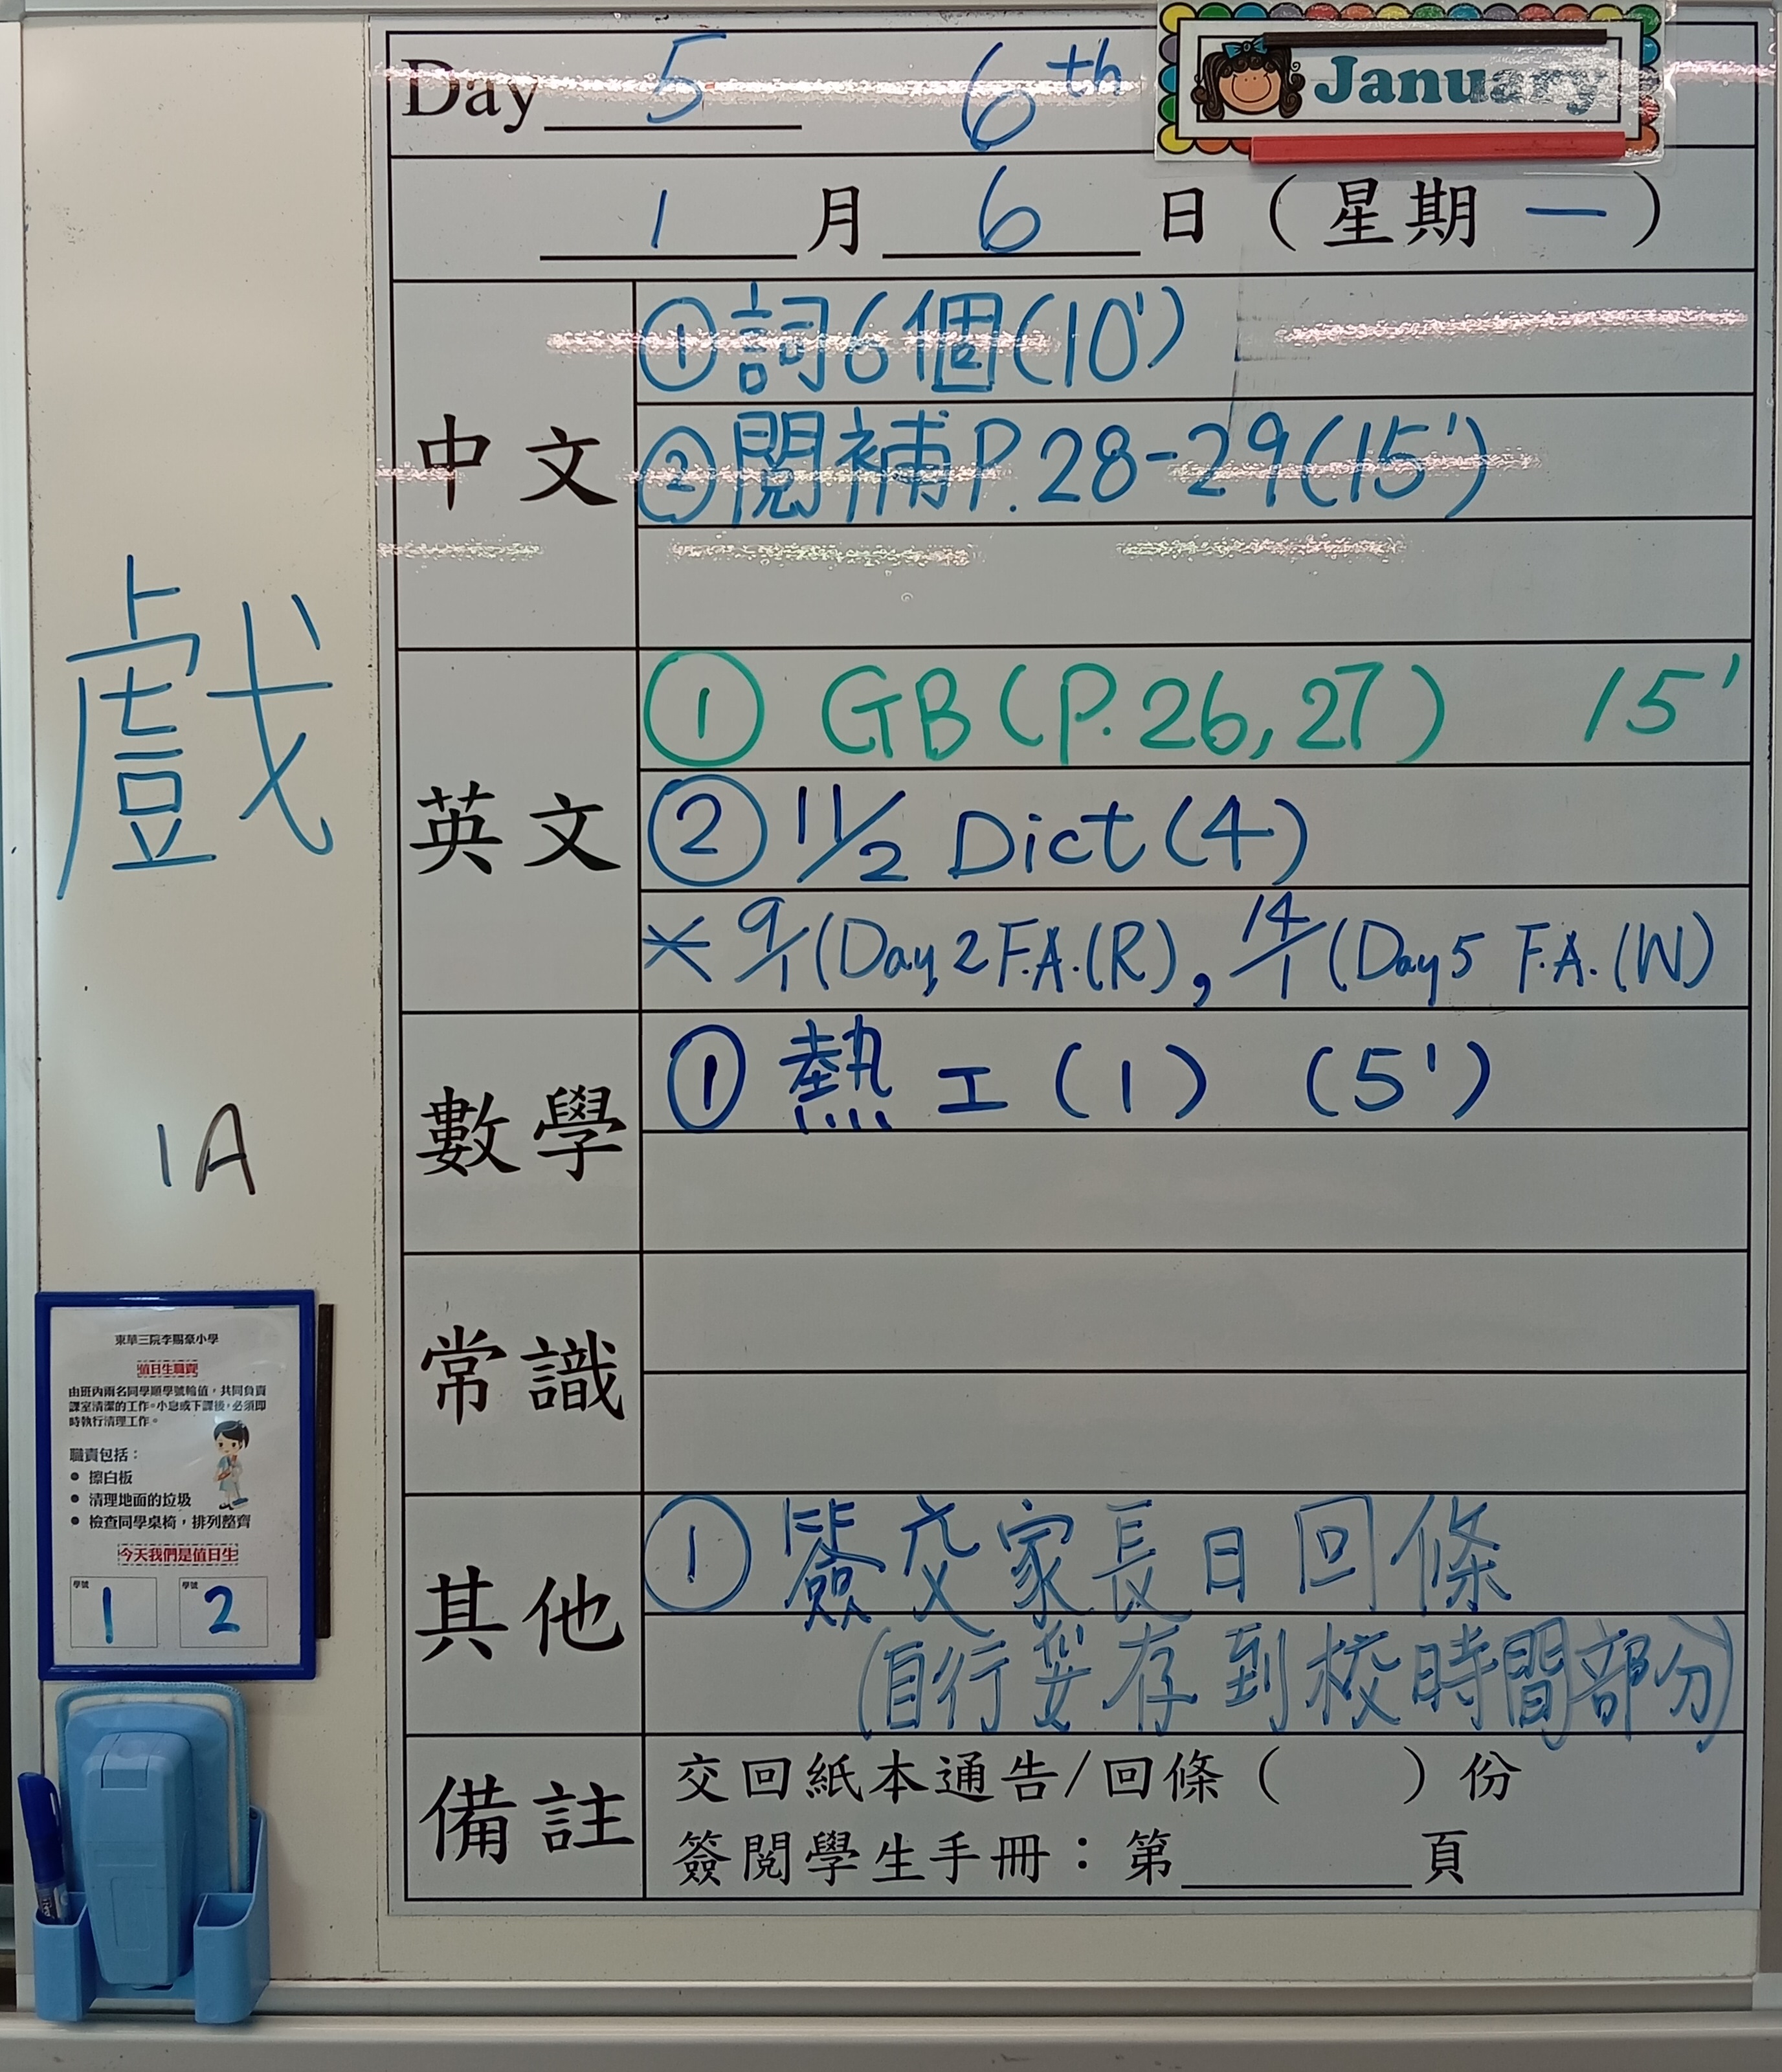 Day 5 6th January
1 月 6 日 (星期 一)
中文
①詞6個(10')
②閱補P.28-29(15')
英文
① GB(P.26,27) 15'
② 11/2 Dict(4)
* 9/1(Day 2 F.A.(R), 14/1(Day 5 F.A.(W)
數學
① 熱工(1) (5')
常識
其他
① 簽交家長日回條
(自行妥存到校時間部分)
備註
交回紙本通告/回條( )份
簽閱學生手冊:第______頁
戲
1A
東華三院李賜豪小學
值日生職責
由班內兩名同學順學號輪值,共同負責
課室清潔的工作。小息或下課後,必須即
時執行清理工作。
職責包括:
• 擦白板
• 清理地面的垃圾
• 檢查同學桌椅,排列整齊
今天我們是值日生
學號 學號
1 2